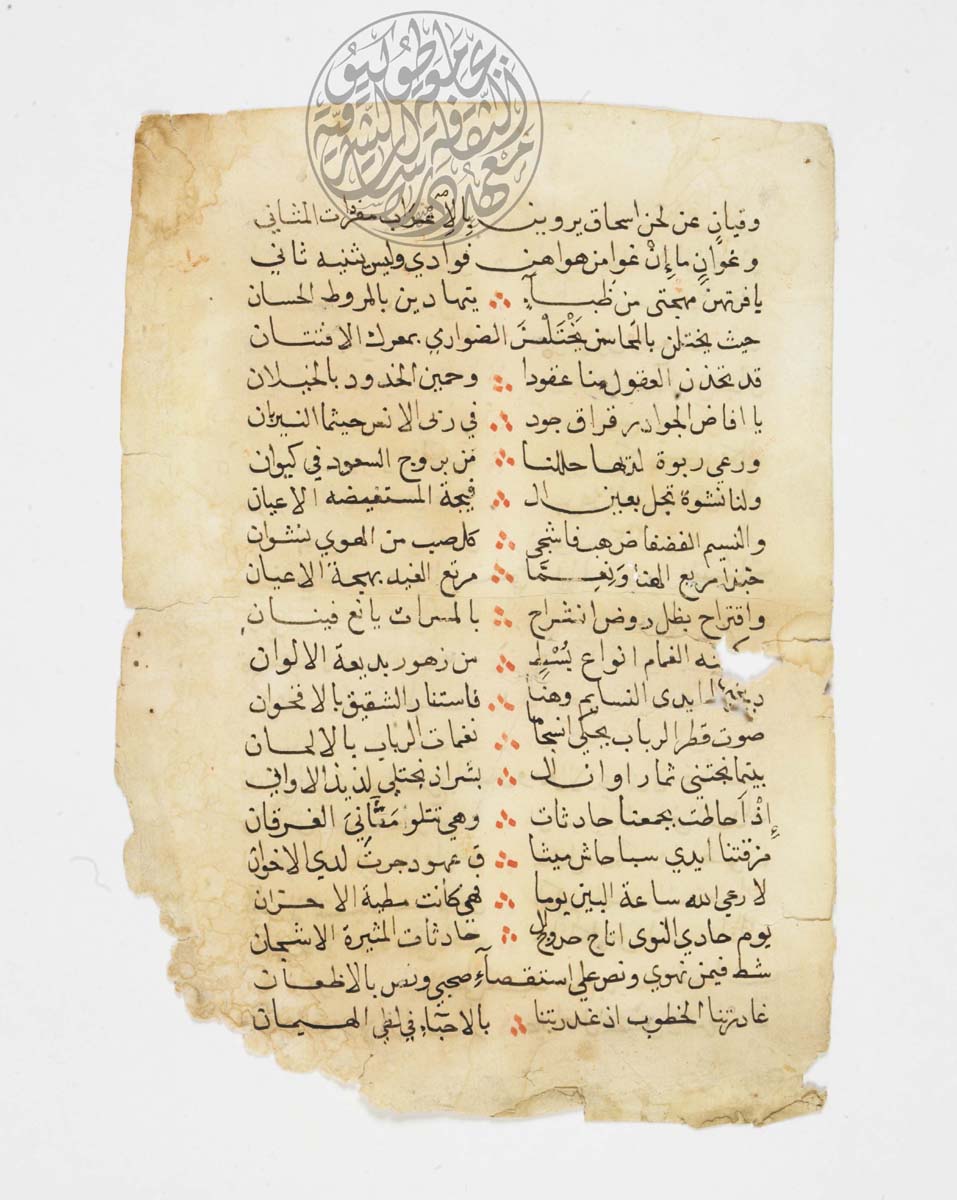 وقيان عن لحن اسحاق يروين بالاضراب مفردات المثاني
وغوانٍ ما إنْ غوا من هواهن فوادي وليس يثنيه ثاني
يا فرتهن مهجتى من ظباءٍ يتهادين بالمروط الحسان
حيث يختلن بالمحاسن يَخْتَلْسْنَ الضواري بمعرك الافتتان
قد تخذن العقول منا عقودا وحمين الخدود بالخيلان
يا افاض الجواد رقراق جود في ربى الانس حيثما النيربان
ورعي ربوة لديها حللنا من بروج السعود في كيوان
ولنا نشوة تجل بعين ال فيجة المستفيضه الاعيان
والنسيم الفضفاض هب فاشجى كل صب من الهوي نشوان
حبذا مربع الهنا ونِعِمَّا مرتع الغيد بهجة الاعيان
واقتراح بظل روض انشراح بالمسرات يانع فينان
الغمام انواع بُسْطٍ من زهور بديعة الالوان
ايدى النسايم وهنا فاستنار الشقيق بالاقحوان
صوت قطر الرباب يحكي انسجاما نغمات الرباب بالالحان
بينما نجتنى ثمار اوان ال بشر اذ نجتلي لذيذ الاواني
إِذْ اَحاطت بجمعنا حادثات وهي تتلو مَثَانيَ الفرقان
مزقتنا ايدي سبا حاش ميثا ق عهود جرت لدي الاخوان
لا رعي الله ساعة البين يوما فهي كانت مطية الاحزان
يوم حادي النوى اتاح صروف ال حادثات المثيرة الاشجان
شط فيمن نهوي ونص علي استقصاءِ صحبي ونص بالاظعات
غادرتنا الخطوب اذ غدرتنا بالاحبّاءِ في لظي الهيمان